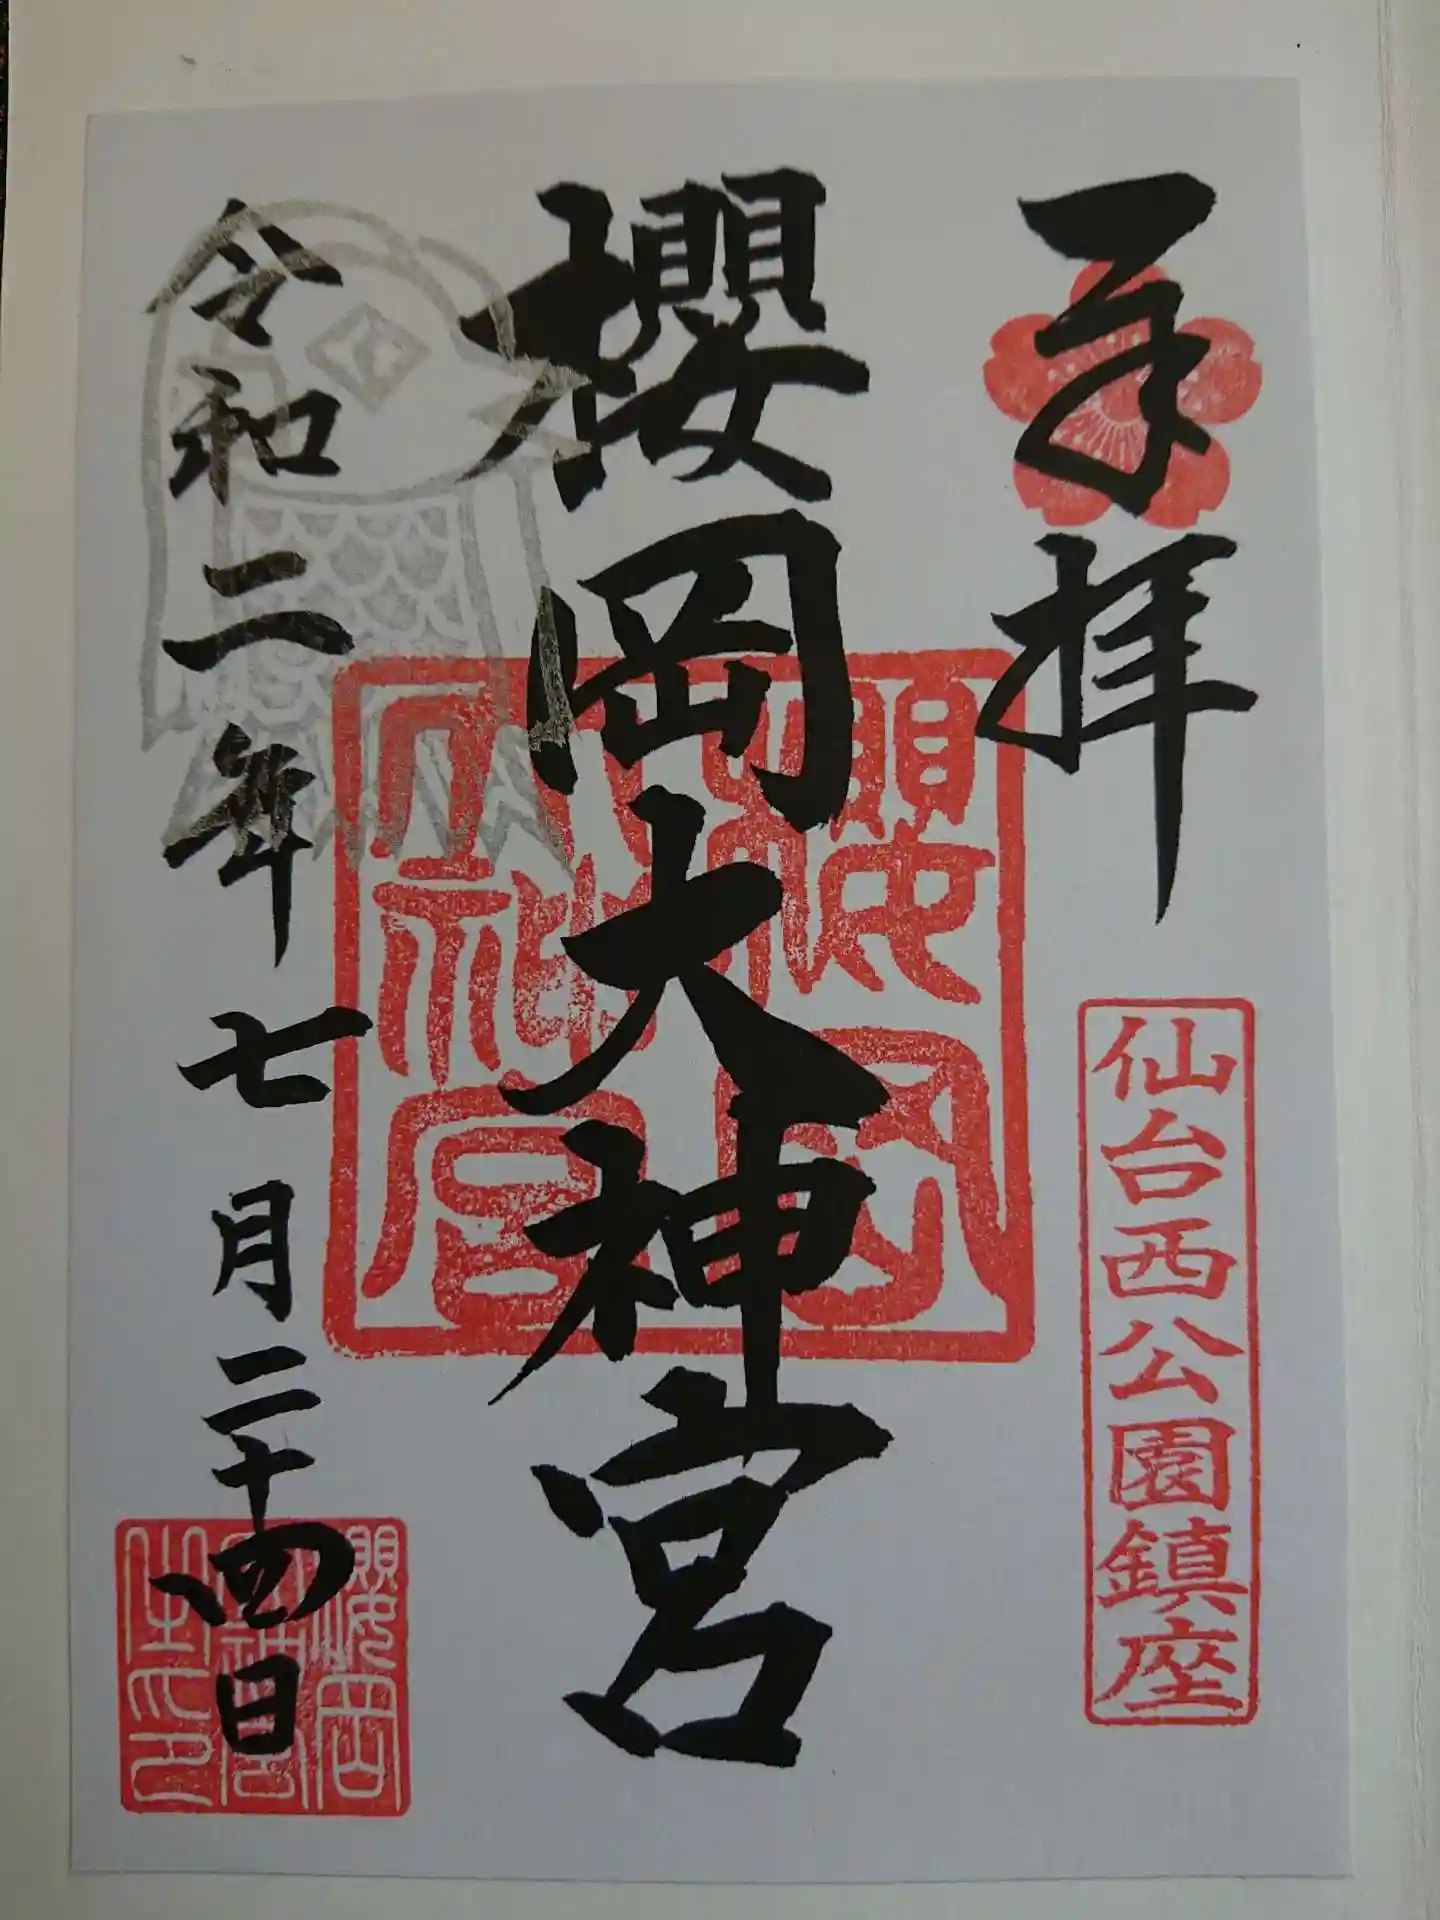 奉拝
仙台西公園鎮座
櫻岡大神宮
櫻岡
大神宮
令和二年七月二十四日
櫻岡
大神宮
之印